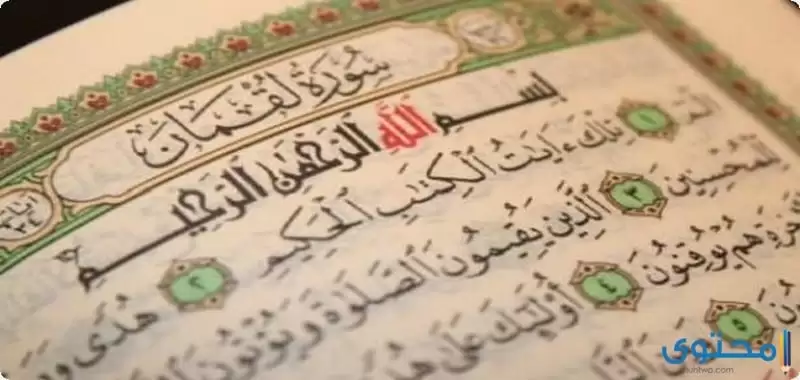 سُورَةُ لُقْمَانَ
بِسْمِ اللَّهِ الرَّحْمَٰنِ الرَّحِيمِ
الٓمٓ ١ تِلْكَ ءَايَٰتُ ٱلْكِتَٰبِ ٱلْحَكِيمِ ٢ هُدًى
لِّلْمُحْسِنِينَ ٣ ٱلَّذِينَ يُقِيمُونَ ٱلصَّلَوٰةَ وَيُؤْتُونَ
هُمْ يُوقِنُونَ ٤ أُو۟لَٰٓئِكَ عَلَىٰ
٥
محتوى